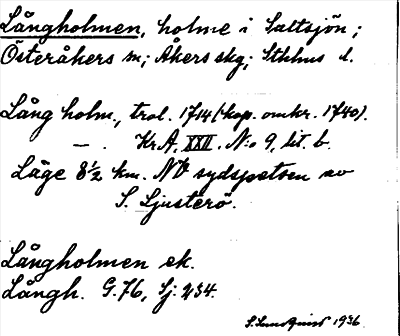 Långholmen, holme i Saltsjön;
Österåkers sn; Åkers skg; Sthlms l.
Lång holm., trol. 1714 (kop. omkr. 1740).
— . Kr.A. XXII. N:o 9, lit. b.
Läge 8 ½ km. NV sydspetsen av
S. Ljusterö.
Långholmen ek.
Långh. G. 76, Sj: 234.
1936.